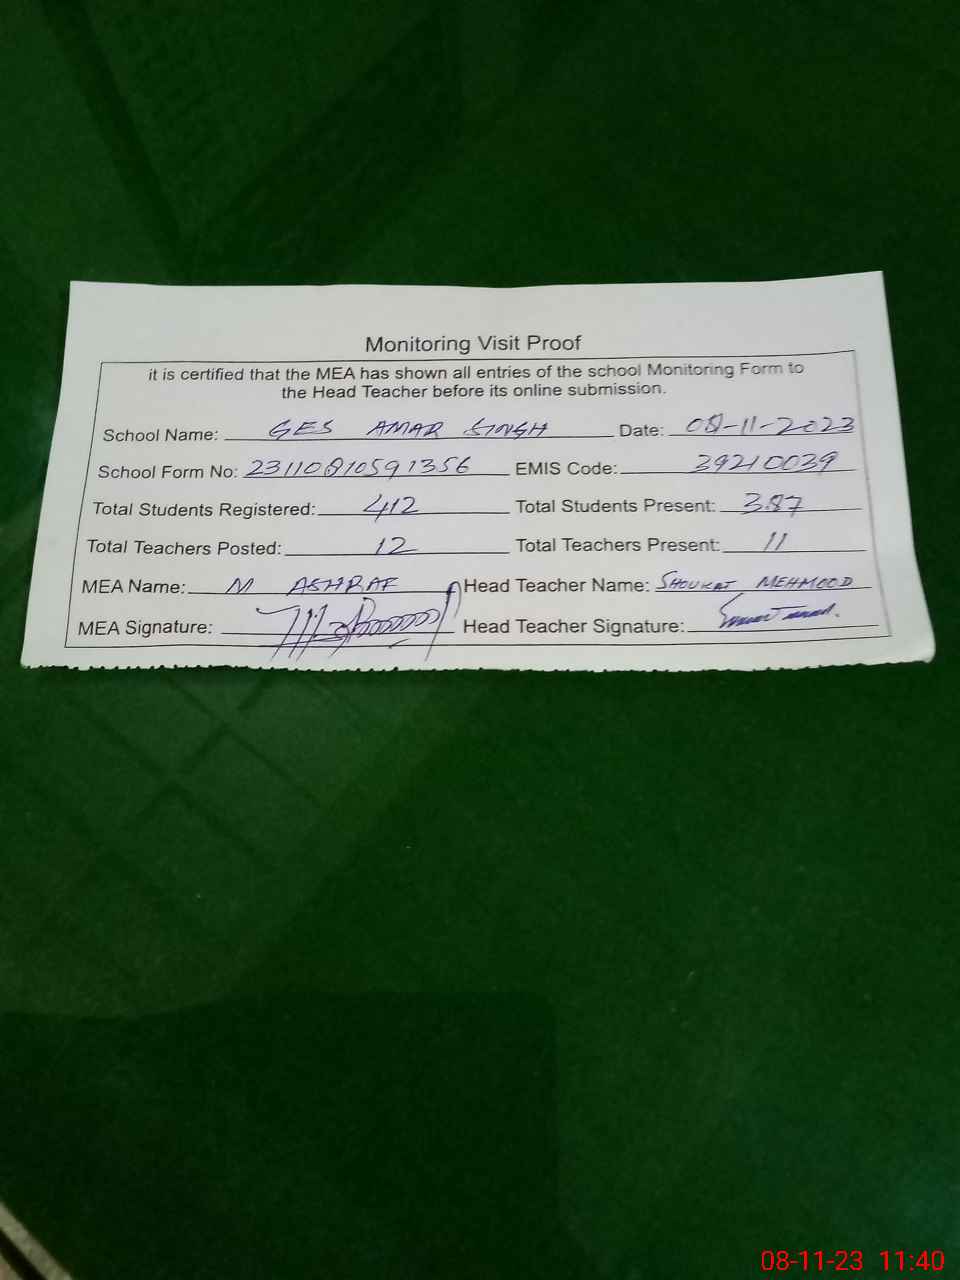 Monitoring Visit Proof
it is certified that the MEA has shown all entries of the school Monitoring Form to
the Head Teacher before its online submission.
School Name: GES AMAR SINGH Date: 08-11-2023
School Form No: 23110810591356 EMIS Code: 39210039
Total Students Registered: 412 Total Students Present: 387
Total Teachers Posted: 12 Total Teachers Present: 11
MEA Name: M ASHRAF Head Teacher Name: SHOUKAT MEHMOOD
MEA Signature: Head Teacher Signature:
08-11-23 11:40